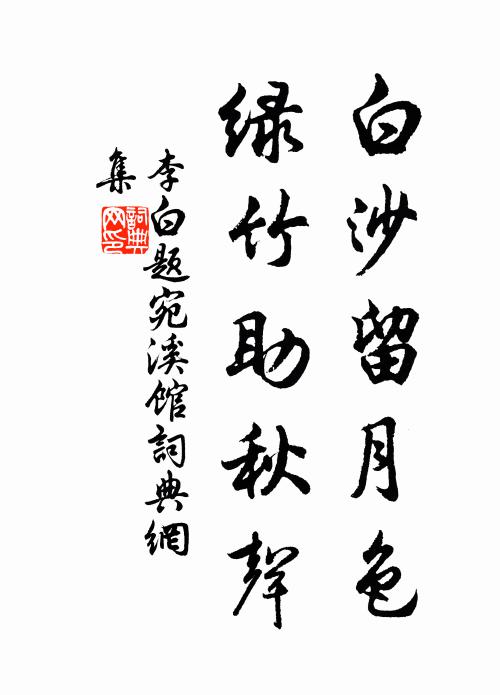 白沙留月色
绿竹助秋聲
李白题宛溪馆詞典網
集
詞典网印